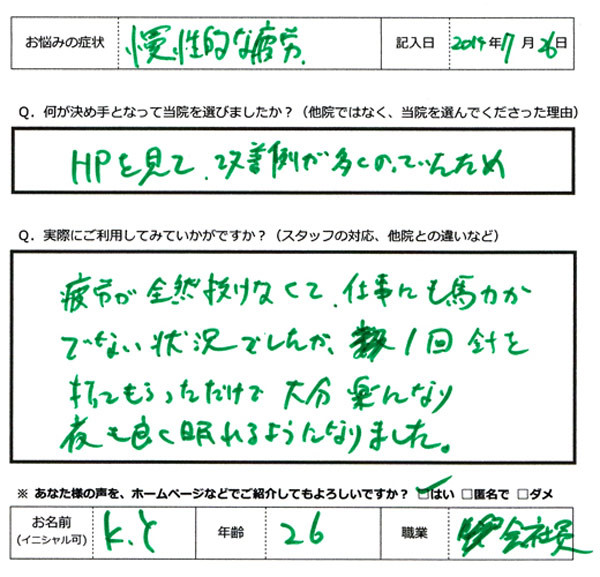 お悩みの症状 慢性的な疲労. 記入日 2014年7月26日
Q．何が決め手となって当院を選びましたか？（他院ではなく、当院を選んでくださった理由）
HPを見て、改善例が多くのっていたため
Q．実際にご利用してみていかがですか？（スタッフの対応、他院との違いなど）
疲労が全然抜けなくて、仕事にも馬力が
でない状況でしたが、1回針を
打ってもらっただけで大分楽になり
夜も良く眠れるようになりました。
※ あなた様の声を、ホームページなどでご紹介してもよろしいですか？ □はい □匿名で □ダメ
お名前 K.と 年齢 26 職業 会社員
(イニシャル可)